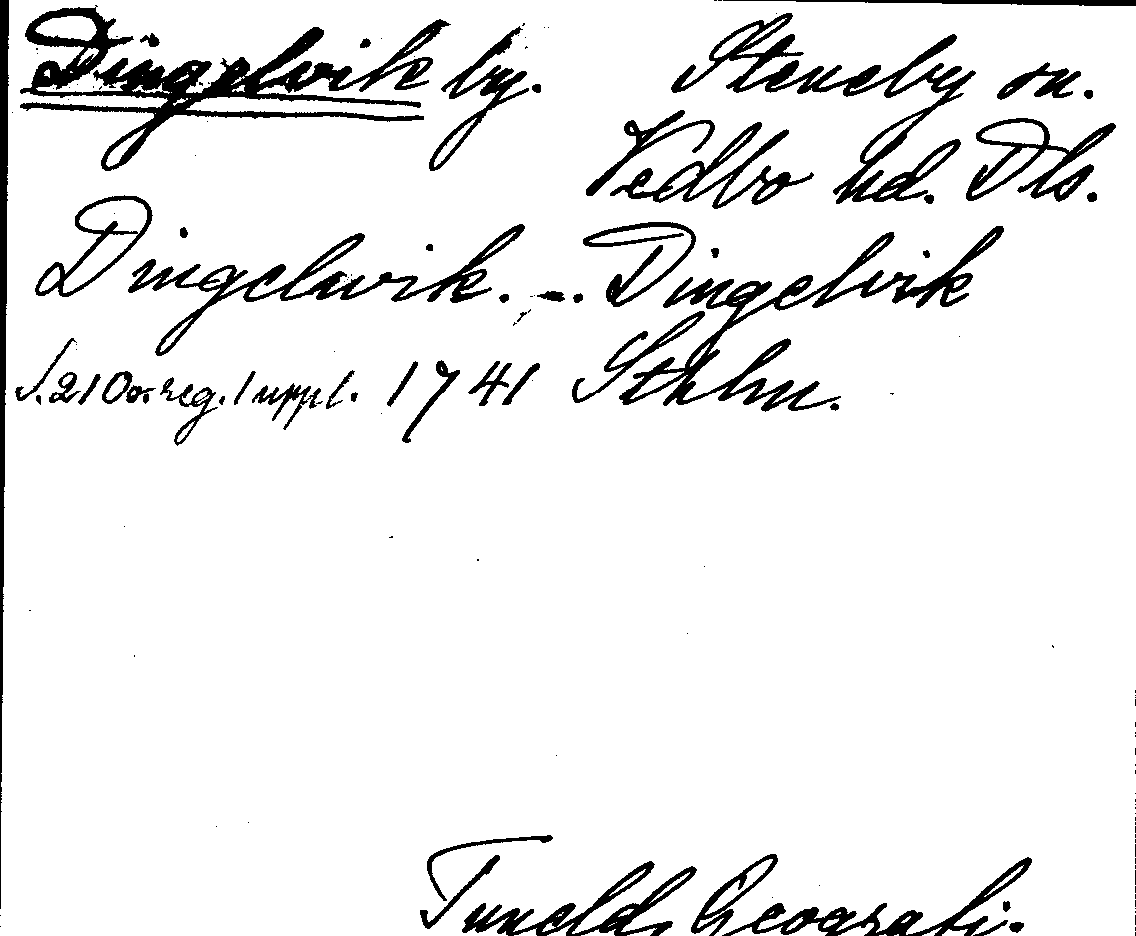 Dingelvik by. Steneby sn.
Vedbo hd. Dls.
Dingelwik. -. Dingelvik
S. 210 o. reg. 1 uppl. 1741 Sthlm.
Tunelds Geografi.